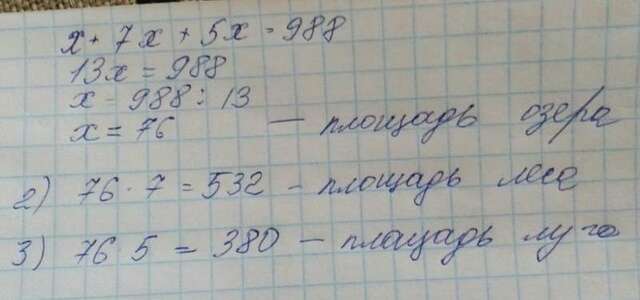 x + 7x + 5x = 988
13x = 988
x = 988 : 13
x = 76 — площадь озера
2) 76 · 7 = 532 – площадь леса
3) 76 · 5 = 380 – площадь луга